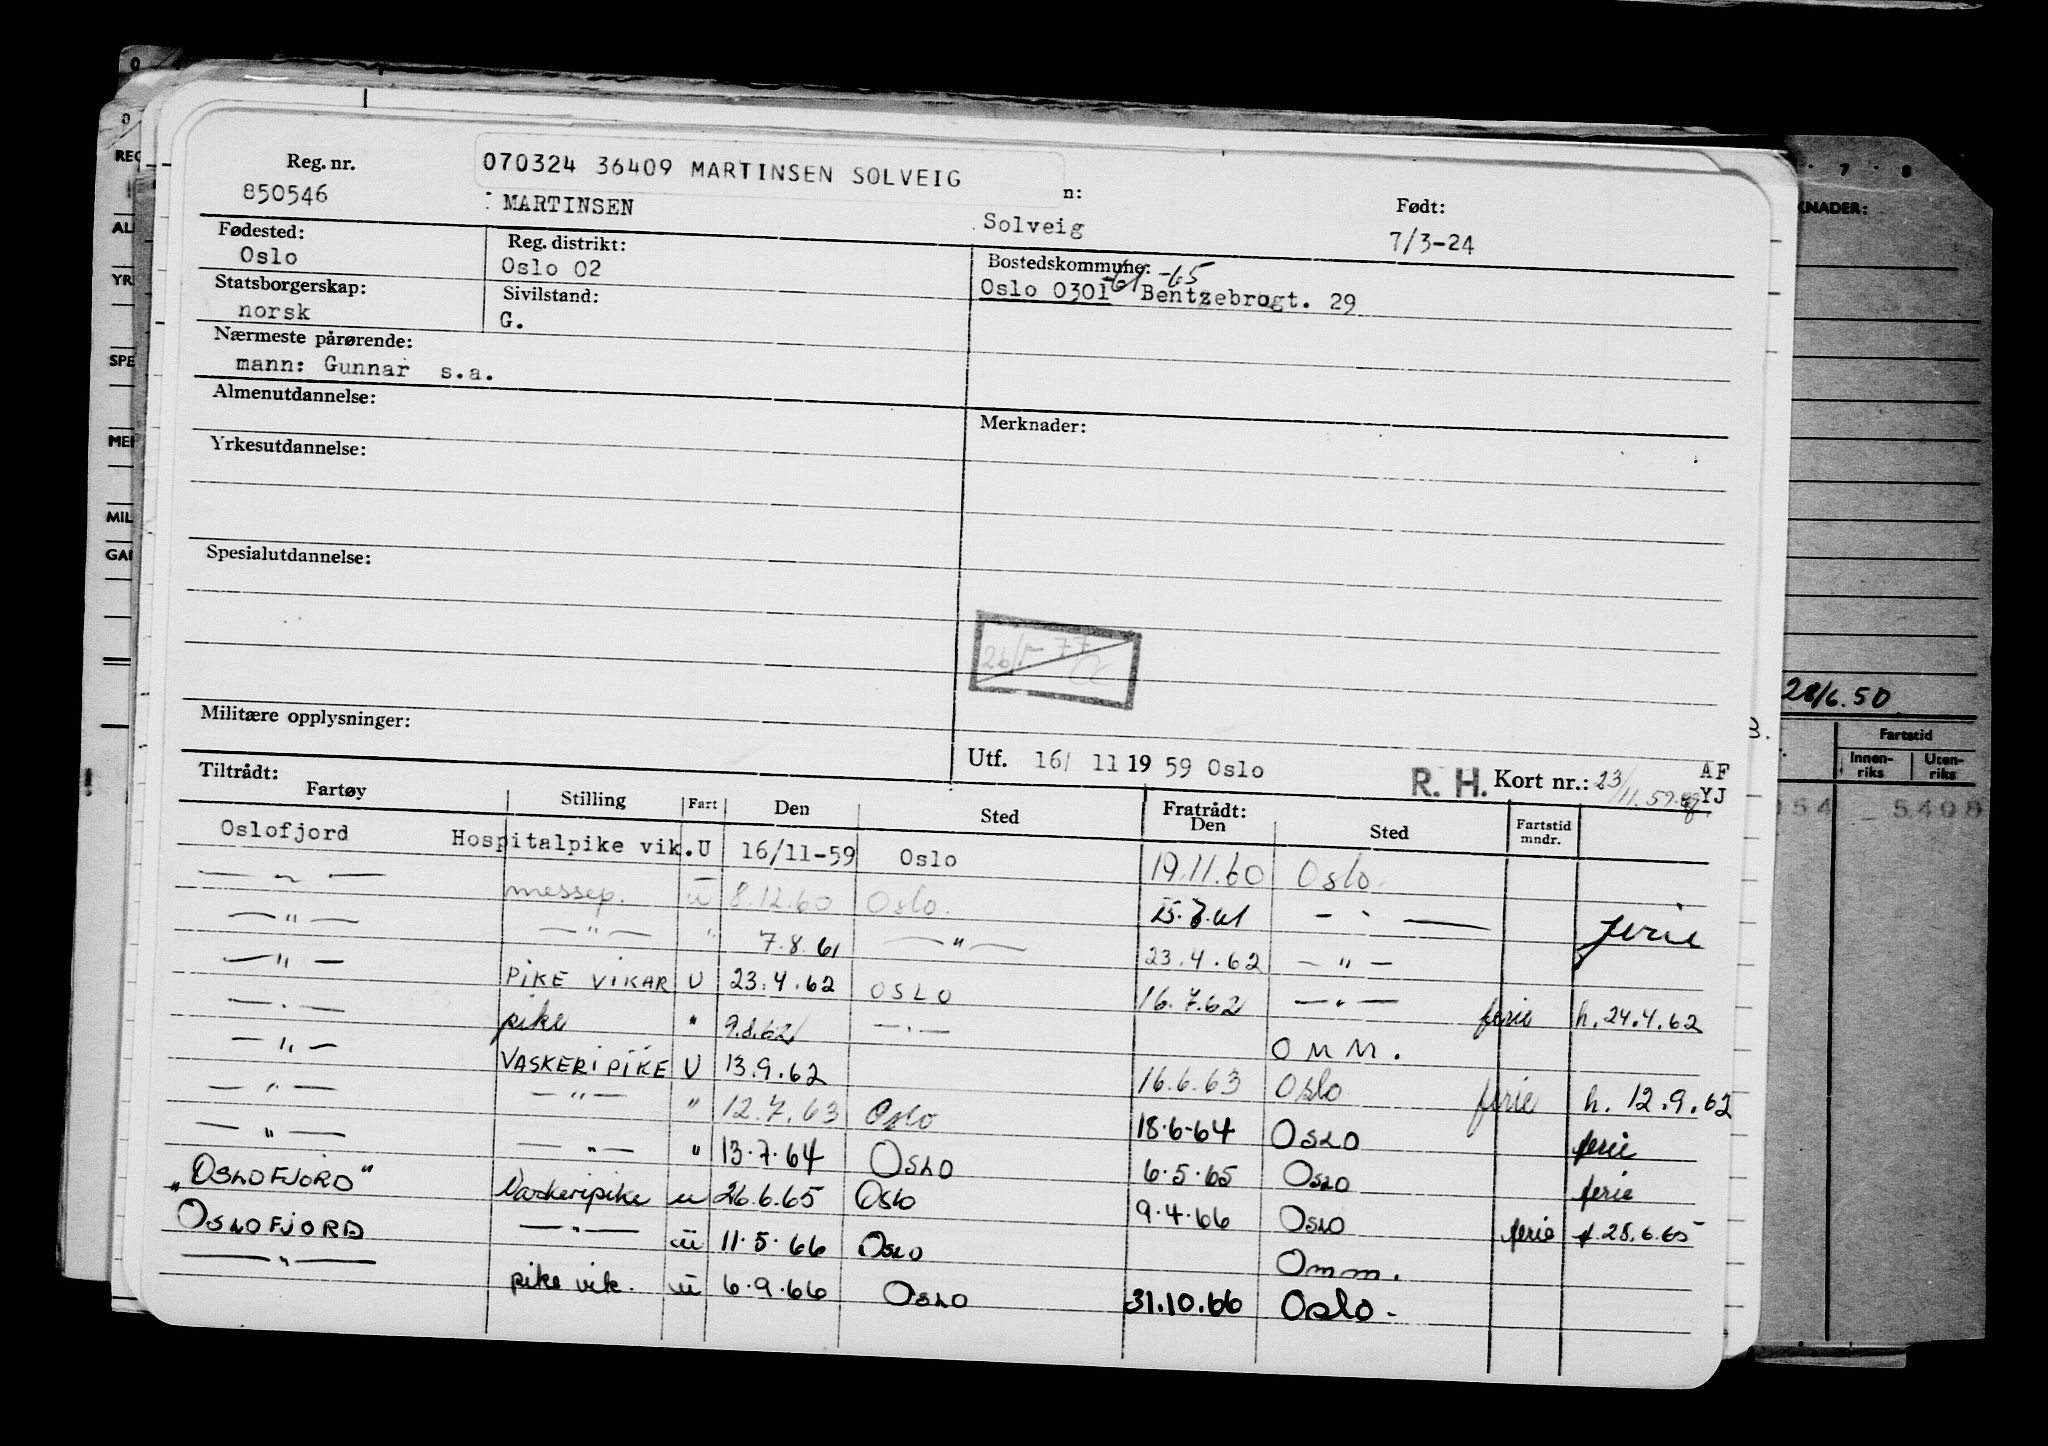 070324 36409 MARTINSEN SOLVEIG
Reg. nr.
850546
MARTINSEN
n:
Solveig
Født:
7/3-24
Fødested:
Oslo
Reg. distrikt:
Oslo 02
Bostedskommune:
-61 -65
Oslo 0301 Bentzebrogt. 29
Statsborgerskap:
norsk
Sivilstand:
G.
Nærmeste pårørende:
mann: Gunnar s.a.
Almenutdannelse:
Merknader:
Yrkesutdannelse:
Spesialutdannelse:
Militære opplysninger:
Utf. 16/ 11 19 59 Oslo
R. H. Kort nr.: 23/11.59
AF
YJ
Tiltrådt:
Fartøy Stilling Fart Den Sted Fratrådt: Den Sted Fartstid mndr.
Oslofjord Hospitalpike vik. U 16/11-59 Oslo 19.11.60 Oslo.
— " — messep. ü 8.12.60 Oslo. 25.7.61 — " — ferie
— " — — " — " 7.8.61 — " — 23.4.62 — " —
— " — PIKE VIKAR U 23.4.62 OSLO 16.7.62 — " — ferie h. 24.4.62
— " — pike " 9.8.62 — " — OMM.
— " — VASKERIPIKE U 13.9.62 16.6.63 Oslo ferie h. 12.9.62
— " — — " — " 12.7.63 Oslo 18.6-64 OSLO ferie
— " — — " — " 13.7.64 OSLO 6.5.65 OSLO ferie
"OSLOFJORD" Vaskeripike u 26.6.65 Oslo 9.4.66 OSLO ferie f. 28.6.65
OSLOFJORD — " — ü 11.5.66 OSLO Omm.
— " — pike vik. ü 6.9.66 OSLO 31.10.66 Oslo.
0
0
REG
AL
YR
SPE
MER
MIL
GAI
7 8
KNADER:
28/6.50
Fartstid
Innen-riks
Uten-riks
5408